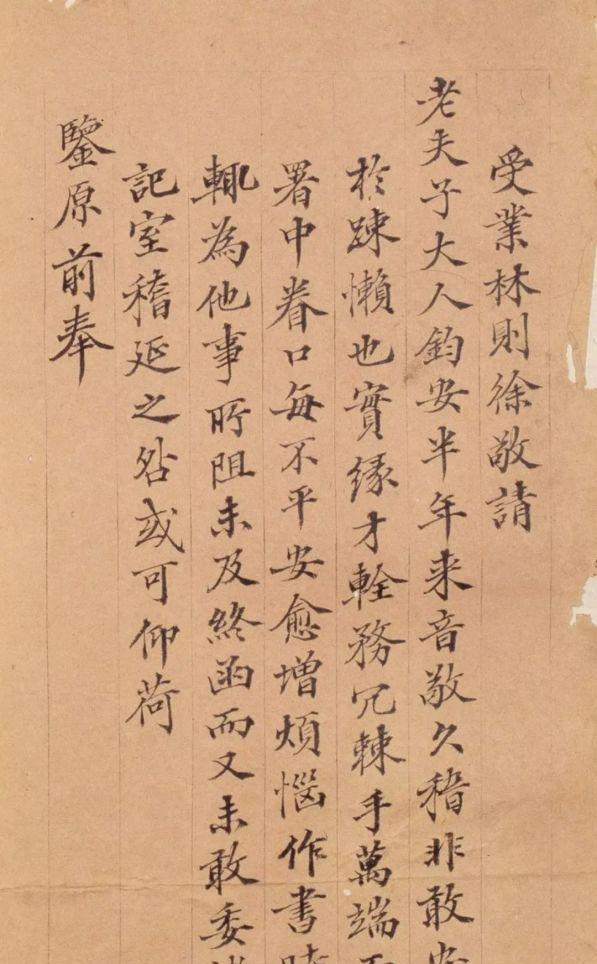 受業林則徐敬請
老夫子大人鈞安半年来音敬久稽非敢安
於踈懶也實緣才輇務冗棘手萬端
署中眷口每不平安愈增煩惱作書時
輒為他事所阻未及終函而又未敢委諸
記室稽延之咎或可仰荷
鑒原前奉